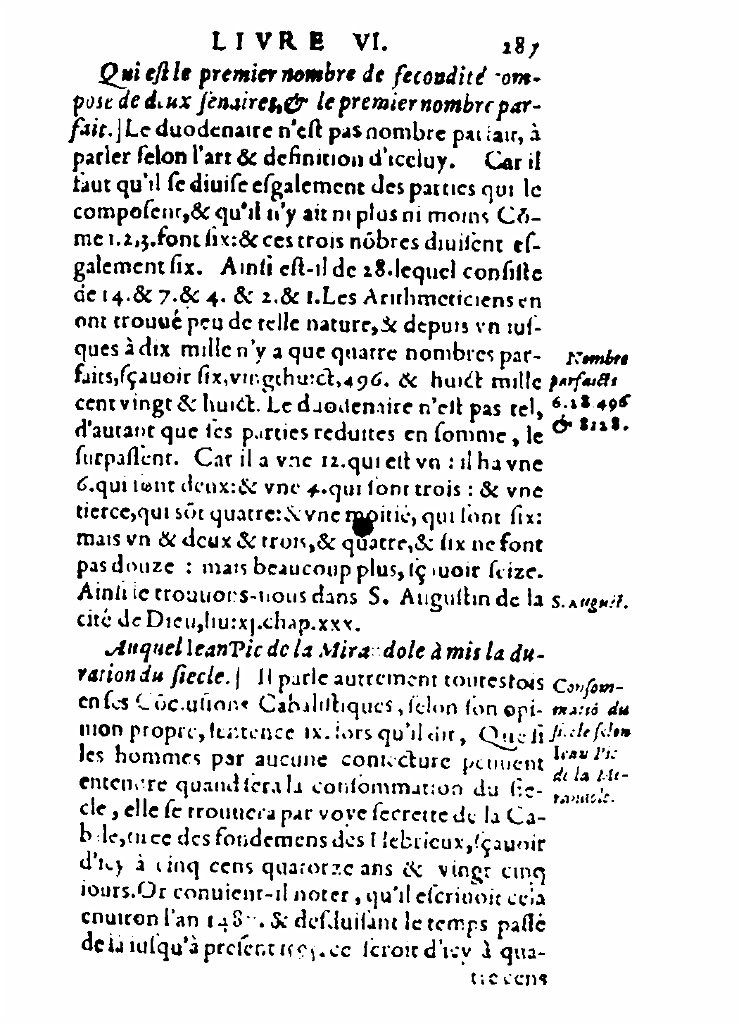 LIVRE VI. 187
Qui eſt le premier nombre de fecondité com-
poſé de deux ſenaires, & le premier nombre par-
fait.] Le duodenaire n'eſt pas nombre parfait, à
parler ſelon l'art & definition d'iceluy. Car il
faut qu'il ſe diuiſe eſgalement des parties qui le
compoſent, & qu'il n'y ait ni plus ni moins Cō-
me 1.2.3. font ſix: & ces trois nōbres diuiſent eſ-
galement ſix. Ainſi eſt-il de 28. lequel conſiſte
de 14. & 7. & 4. & 2. & 1. Les Arithmeticiens en
ont trouué peu de telle nature, & depuis vn iuſ-
ques à dix mille n'y a que quatre nombres par-
faits, ſçauoir ſix, vingthuict, 496. & huict mille
cent vingt & huict. Le duodenaire n'eſt pas tel,
d'autant que ſes parties reduites en ſomme, le
ſurpaſſent. Car il a vne 12. qui eſt vn: il ha vne
6. qui ſont deux: & vne 4. qui ſont trois: & vne
tierce, qui sōt quatre: & vne moitié, qui ſont ſix:
mais vn & deux & trois, & quatre, & ſix ne font
pas douze: mais beaucoup plus, ſçauoir ſeize.
Ainſi le trouuons-nous dans S. Auguſtin de la
cité de Dieu, liu: xj. chap. xxx.
Auquel Iean Pic de la Mirandole à mis la du-
ration du ſiecle.] Il parle autrement toutesfois
en ſes Cōcluſions Cabaliſtiques, ſelon ſon opi-
nion propre, ſentence ix. lors qu'il dit, Que ſi
les hommes par aucune coniecture peuuent
entendre quand ſera la conſommation du ſie-
cle, elle ſe trouuera par voye ſecrette de la Ca-
bale, tiree des fondemens des Hebrieux, ſçauoir
d'icy à cinq cens quatorze ans & vingt cinq
iours. Or conuient-il noter, qu'il eſcriuoit cela
enuiron l'an 148 . & deſduiſant le temps paſſé
de là iuſqu'à preſent ce ſeroit d'icy à qua-
tre cens
Nombre
parfaicts
6.28 496
& 8128.
S. Auguſt.
Conſom-
matiō du
ſiecle ſelon
Iean Pic
de la Mi-
randole.